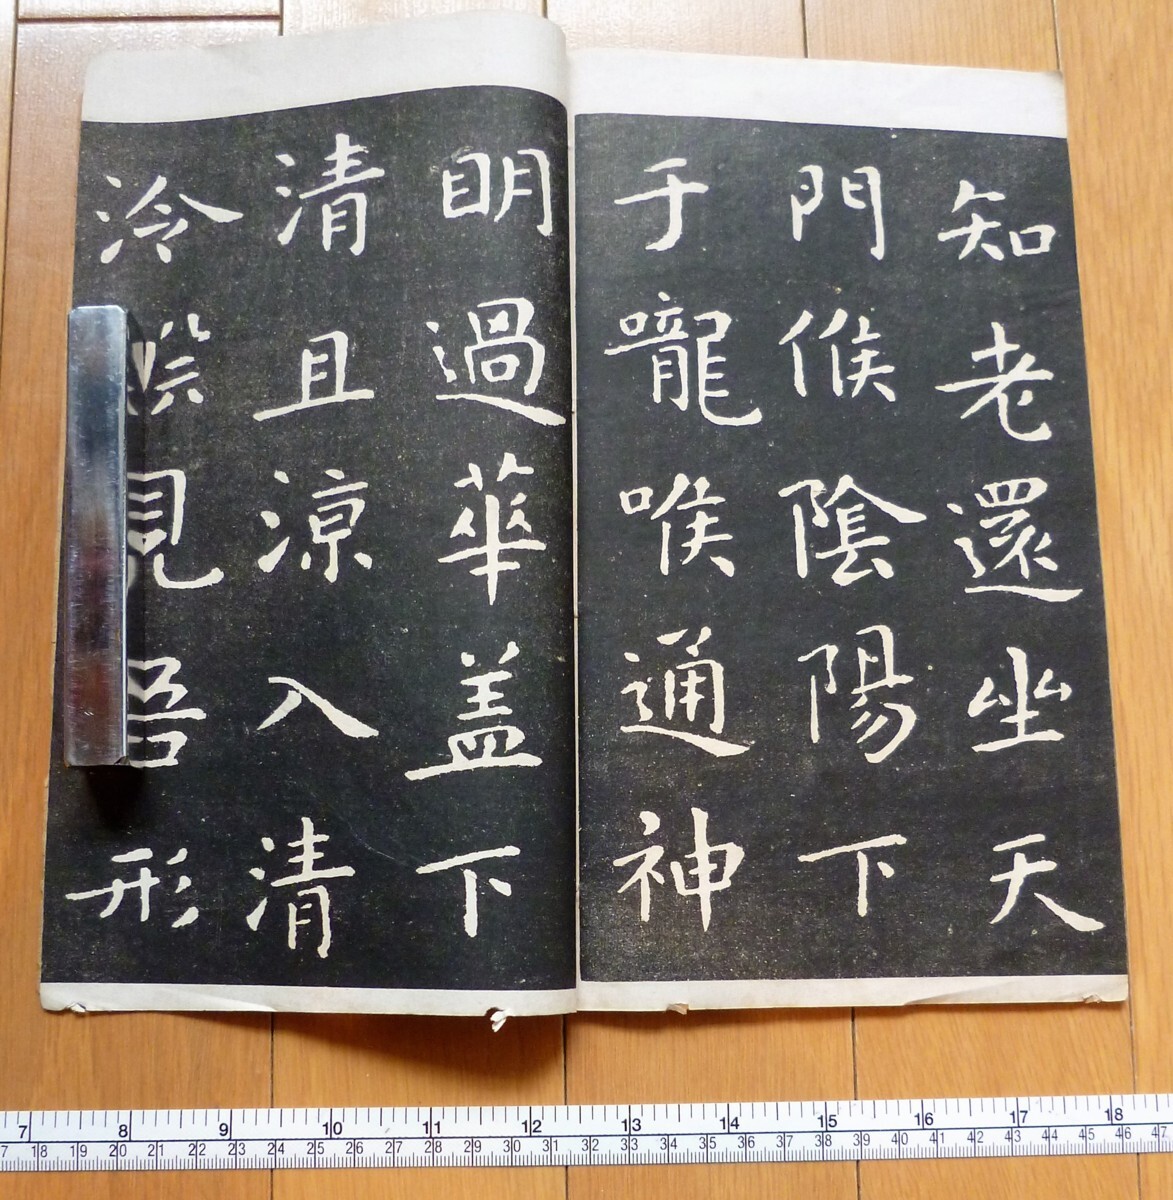 知老還坐天
門候陰陽下
于嚨喉通神
明過華盖下
清且涼入清
泠見吾形
7 8 9 10 11 12 13 14 15 16 17 18
18 19 20 21 22 23 24 25 26 27 28 29 30 31 32 33 34 35 36 37 38 39 40 41 42 43 44 45 46 47